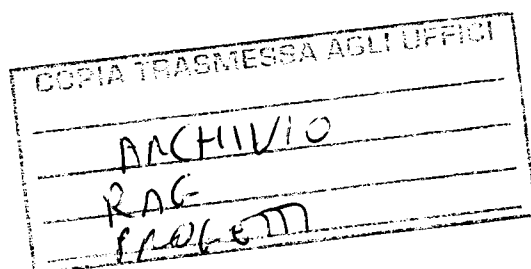 COPIA TRASMESSA AGLI UFFICI
ARCHIVIO
RAG
PROGETTI